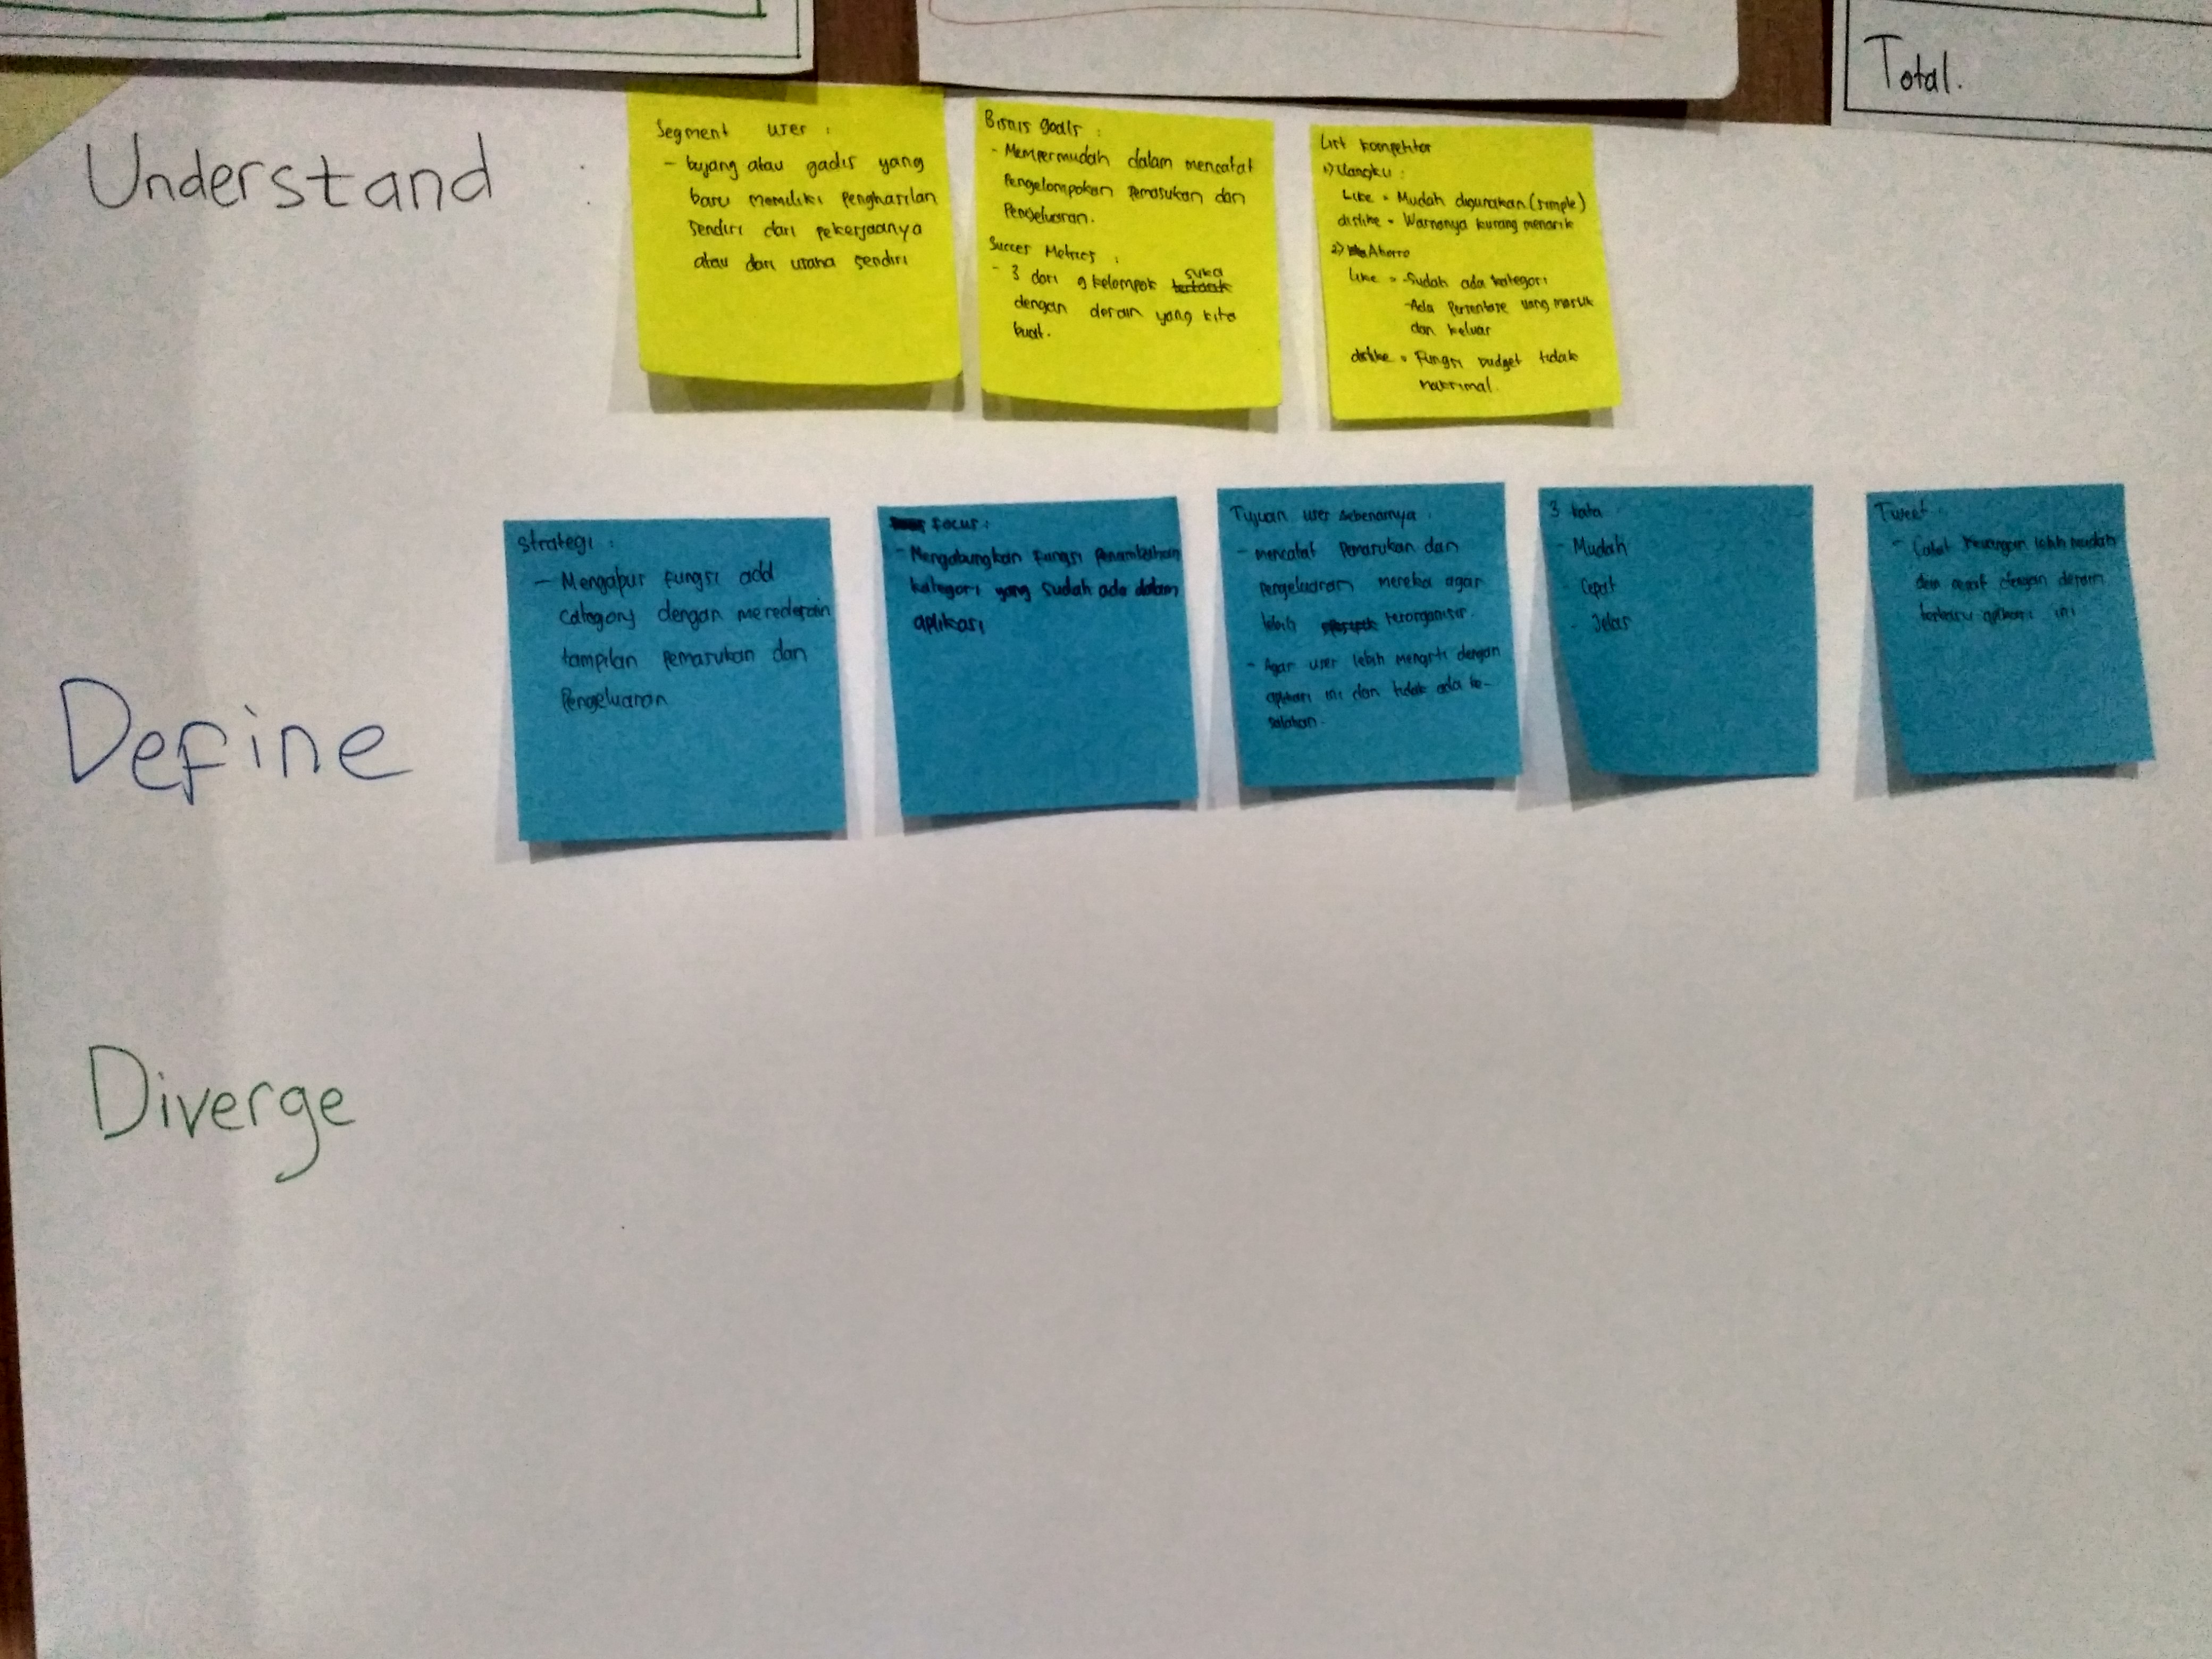 Total.
Understand :
Segment user :
- bujang atau gadis yang
baru memiliki Penghasilan
Sendiri dari pekerjaanya
atau dari usaha sendiri
Bisnis goals :
- Mempermudah dalam mencatat
Pengelompokan Pemasukan dan
Pengeluaran.
Succes Metrics :
- 3 dari 9 kelompok suka
dengan desain yang kita
buat.
List kompetitor
1) Uangku :
Like = Mudah digunakan (simple)
dislike = Warnanya kurang menarik
2) Ahorro
Like = - Sudah ada kategori
- Ada Persentase uang masuk
dan keluar
dislike = Fungsi budget tidak
maksimal.
Define
Strategi :
- Mengapus fungsi add
category dengan meredesain
tampilan Pemasukan dan
Pengeluaran
Focus :
- Mengabungkan fungsi Penambahan
kategori yang sudah ada dalam
aplikasi
Tujuan user sebenarnya :
- mencatat Pemasukan dan
Pengeluaran mereka agar
lebih terorganisir.
- Agar user lebih mengrti dengan
aplikasi ini dan tidak ada ke-
salahan.
3 kata
- Mudah
- Cepat
- Jelas
Tweet :
- Catat keuangan lebih mudah
dan dengan desain
terbaru aplikasi ini
Diverge